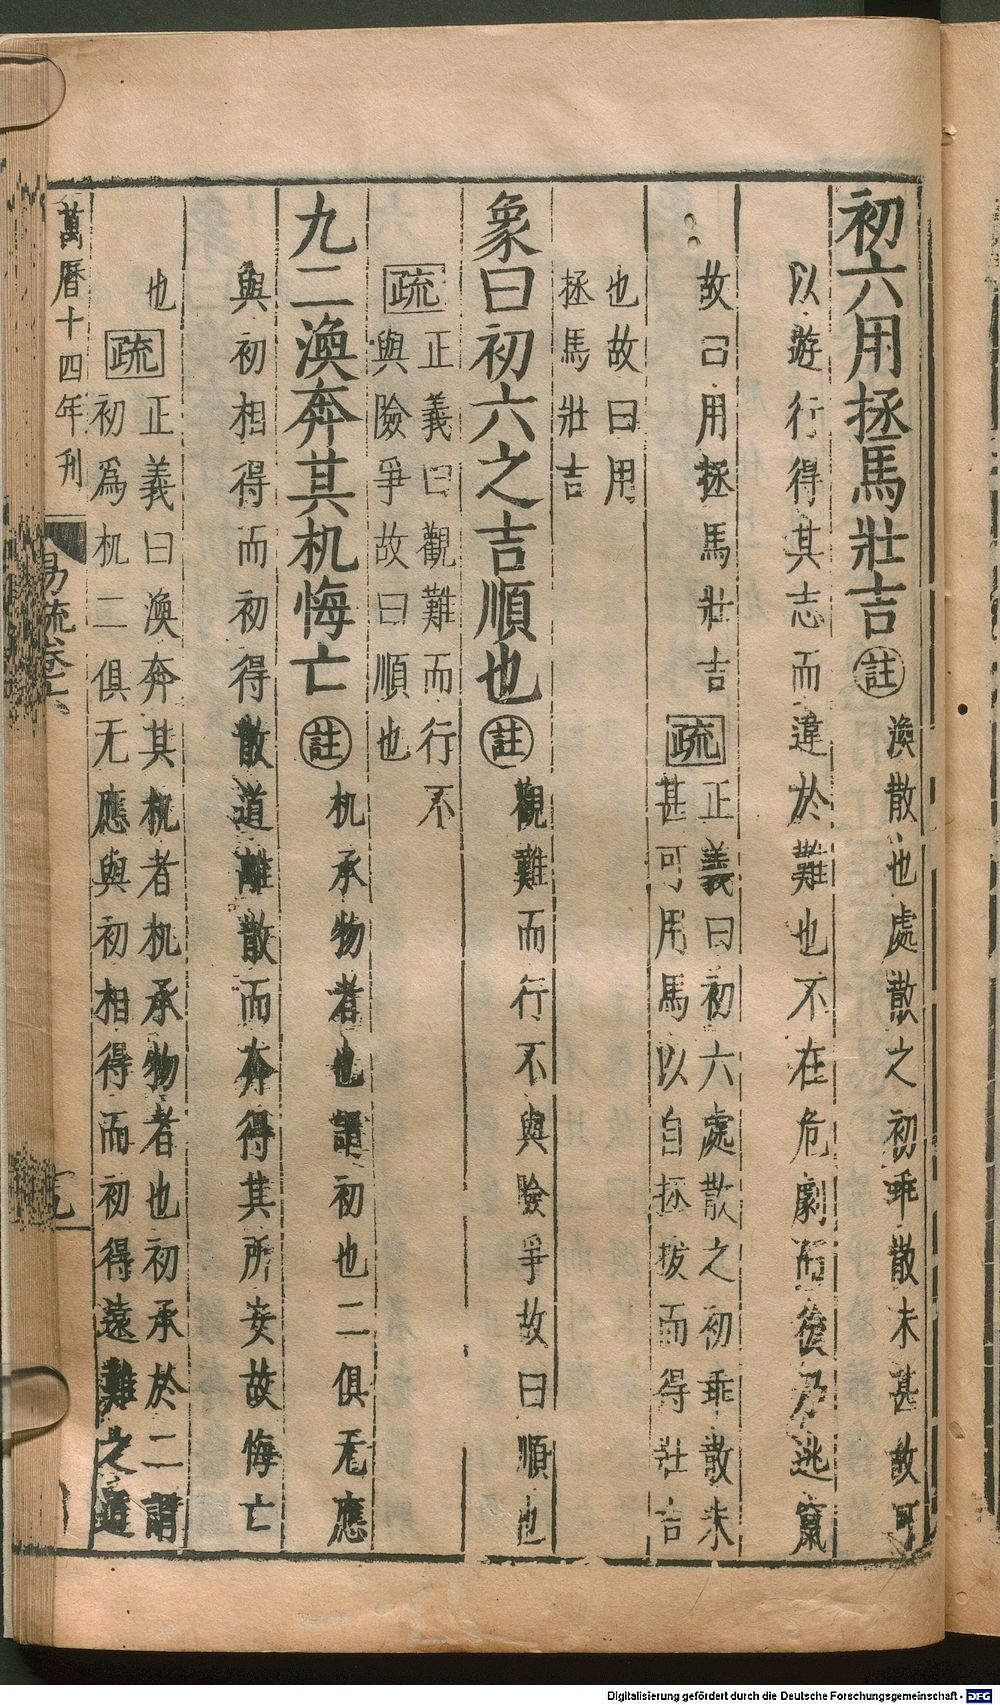 初六用拯馬壯吉註渙散也處散之初乖散未甚故可
以遊行得其志而違於難也不在危劇而後乃逃竄
故曰用拯馬壯吉疏正義曰初六處散之初乖散未
甚可用馬以自拯拔而得壯吉
也故曰用
拯馬壯吉
象曰初六之吉順也註觀難而行不與險爭故曰順也
疏正義曰觀難而行不
與險爭故曰順也
九二渙奔其机悔亡註机承物者也謂初也二俱无應
與初相得而初得散道離散而奔得其所安故悔亡
也疏正義曰渙奔其机者机承物者也初承於二謂
初爲机二俱无應與初相得而初得遠難之道
萬曆十四年刋
易疏卷六
Digitalisierung gefördert durch die Deutsche Forschungsgemeinschaft - DFG